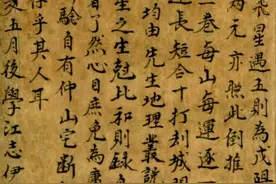 飛星遇五則為戊阻
元亦照此倒推
一卷每山每運逐一
長短合十打刼城門
均由先生地理叢說
生之生尅比和則錄
了然心目庶免為庸
驗自有仲山宅斷
存乎其人耳
亥五月後學江志伊